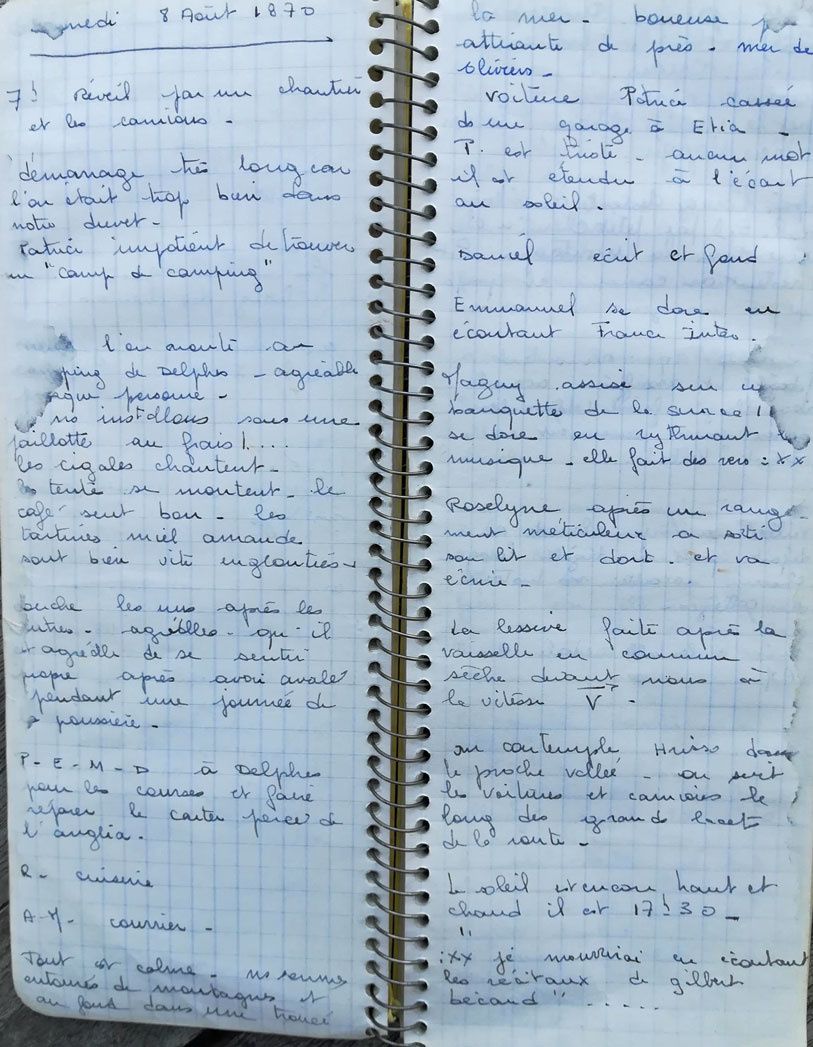 medi 8 Août 1870
7h Réveil par un chantier
et les camions -
démanage très long car
l'on était trop bien dans
notre duvet -
Patrick impatient de trouver
un "camp de camping"
l'on monte au
ping de Delphes - agréable
personne -
ns installons sous une
paillotte au frais !....
les cigales chantent -
tente se montent - le
café sent bon - les
tartines miel amande
sont bien vite englouties -
les uns après les
autres - agréables - qu'il
agréable de se sentir
propre après avoir avalé
pendant une journée de
poussière -
P - E - M - D à Delphes
pour les courses et faire
réparer le carter percé de
l'anglia.
R - cuisine
A-M - courrier -
Tout est calme - ns sommes
entourés de montagnes et
au fond dans une trouée
la mer - boueuse
attirante de près - mer de
oliviers -
voiture Patrick cassée
ds une garage à Etia -
P. est triste - aucun mot
il est étendu à l'écart
au soleil.
Daniel écrit et fond
Emmanuel se dore en
écoutant France Inter.
Maguy assise sur
banquette de la simca !
se dore en rythmant
musique - elle fait des vers : xx
Roselyne après un range-
ment méticuleux a sorti
son lit et dort. et va
écrire -
La lessive faite après la
vaisselle en commun
sèche devant nous à
la vitesse V -
on contemple dans
la proche vallée - on suit
les voitures et camions le
long des grands lacets
de la route -
Le soleil est encore haut et
chaud il est 17h30 -
:xx "je mourrai en écoutant
les récitaux de gilbert
bécaud" .....